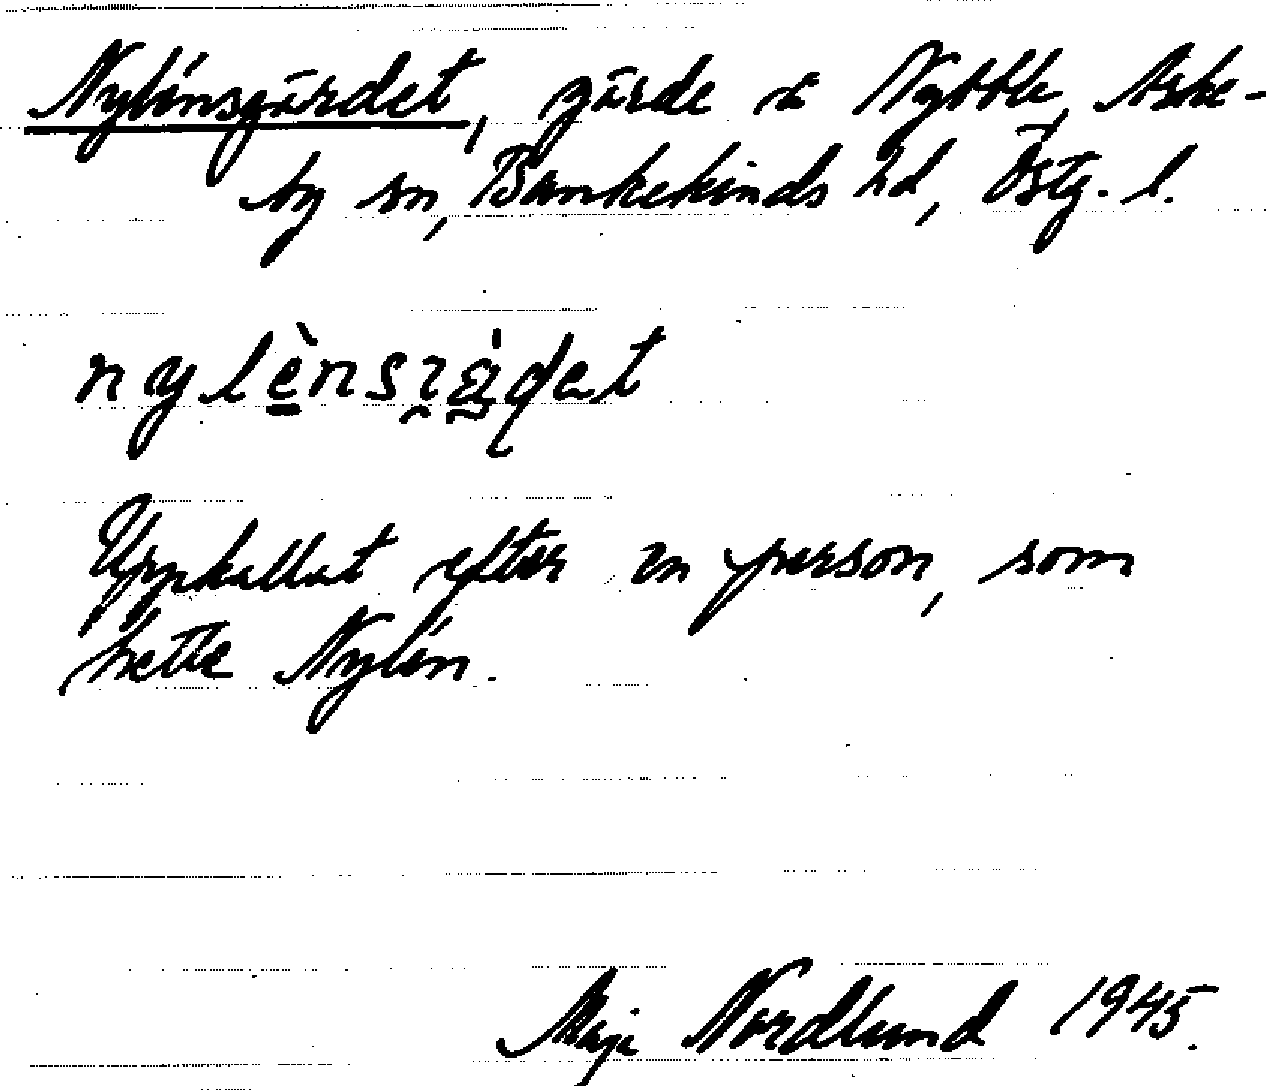 Nylénsgärdet, gärde å Nybble, Aske-
by sn, Bankekinds hd, Östg. l.
nylènsgạ̈̀ḍet
Uppkallat efter en person, som
hette Nylén.
Maja Nordlund 1945.